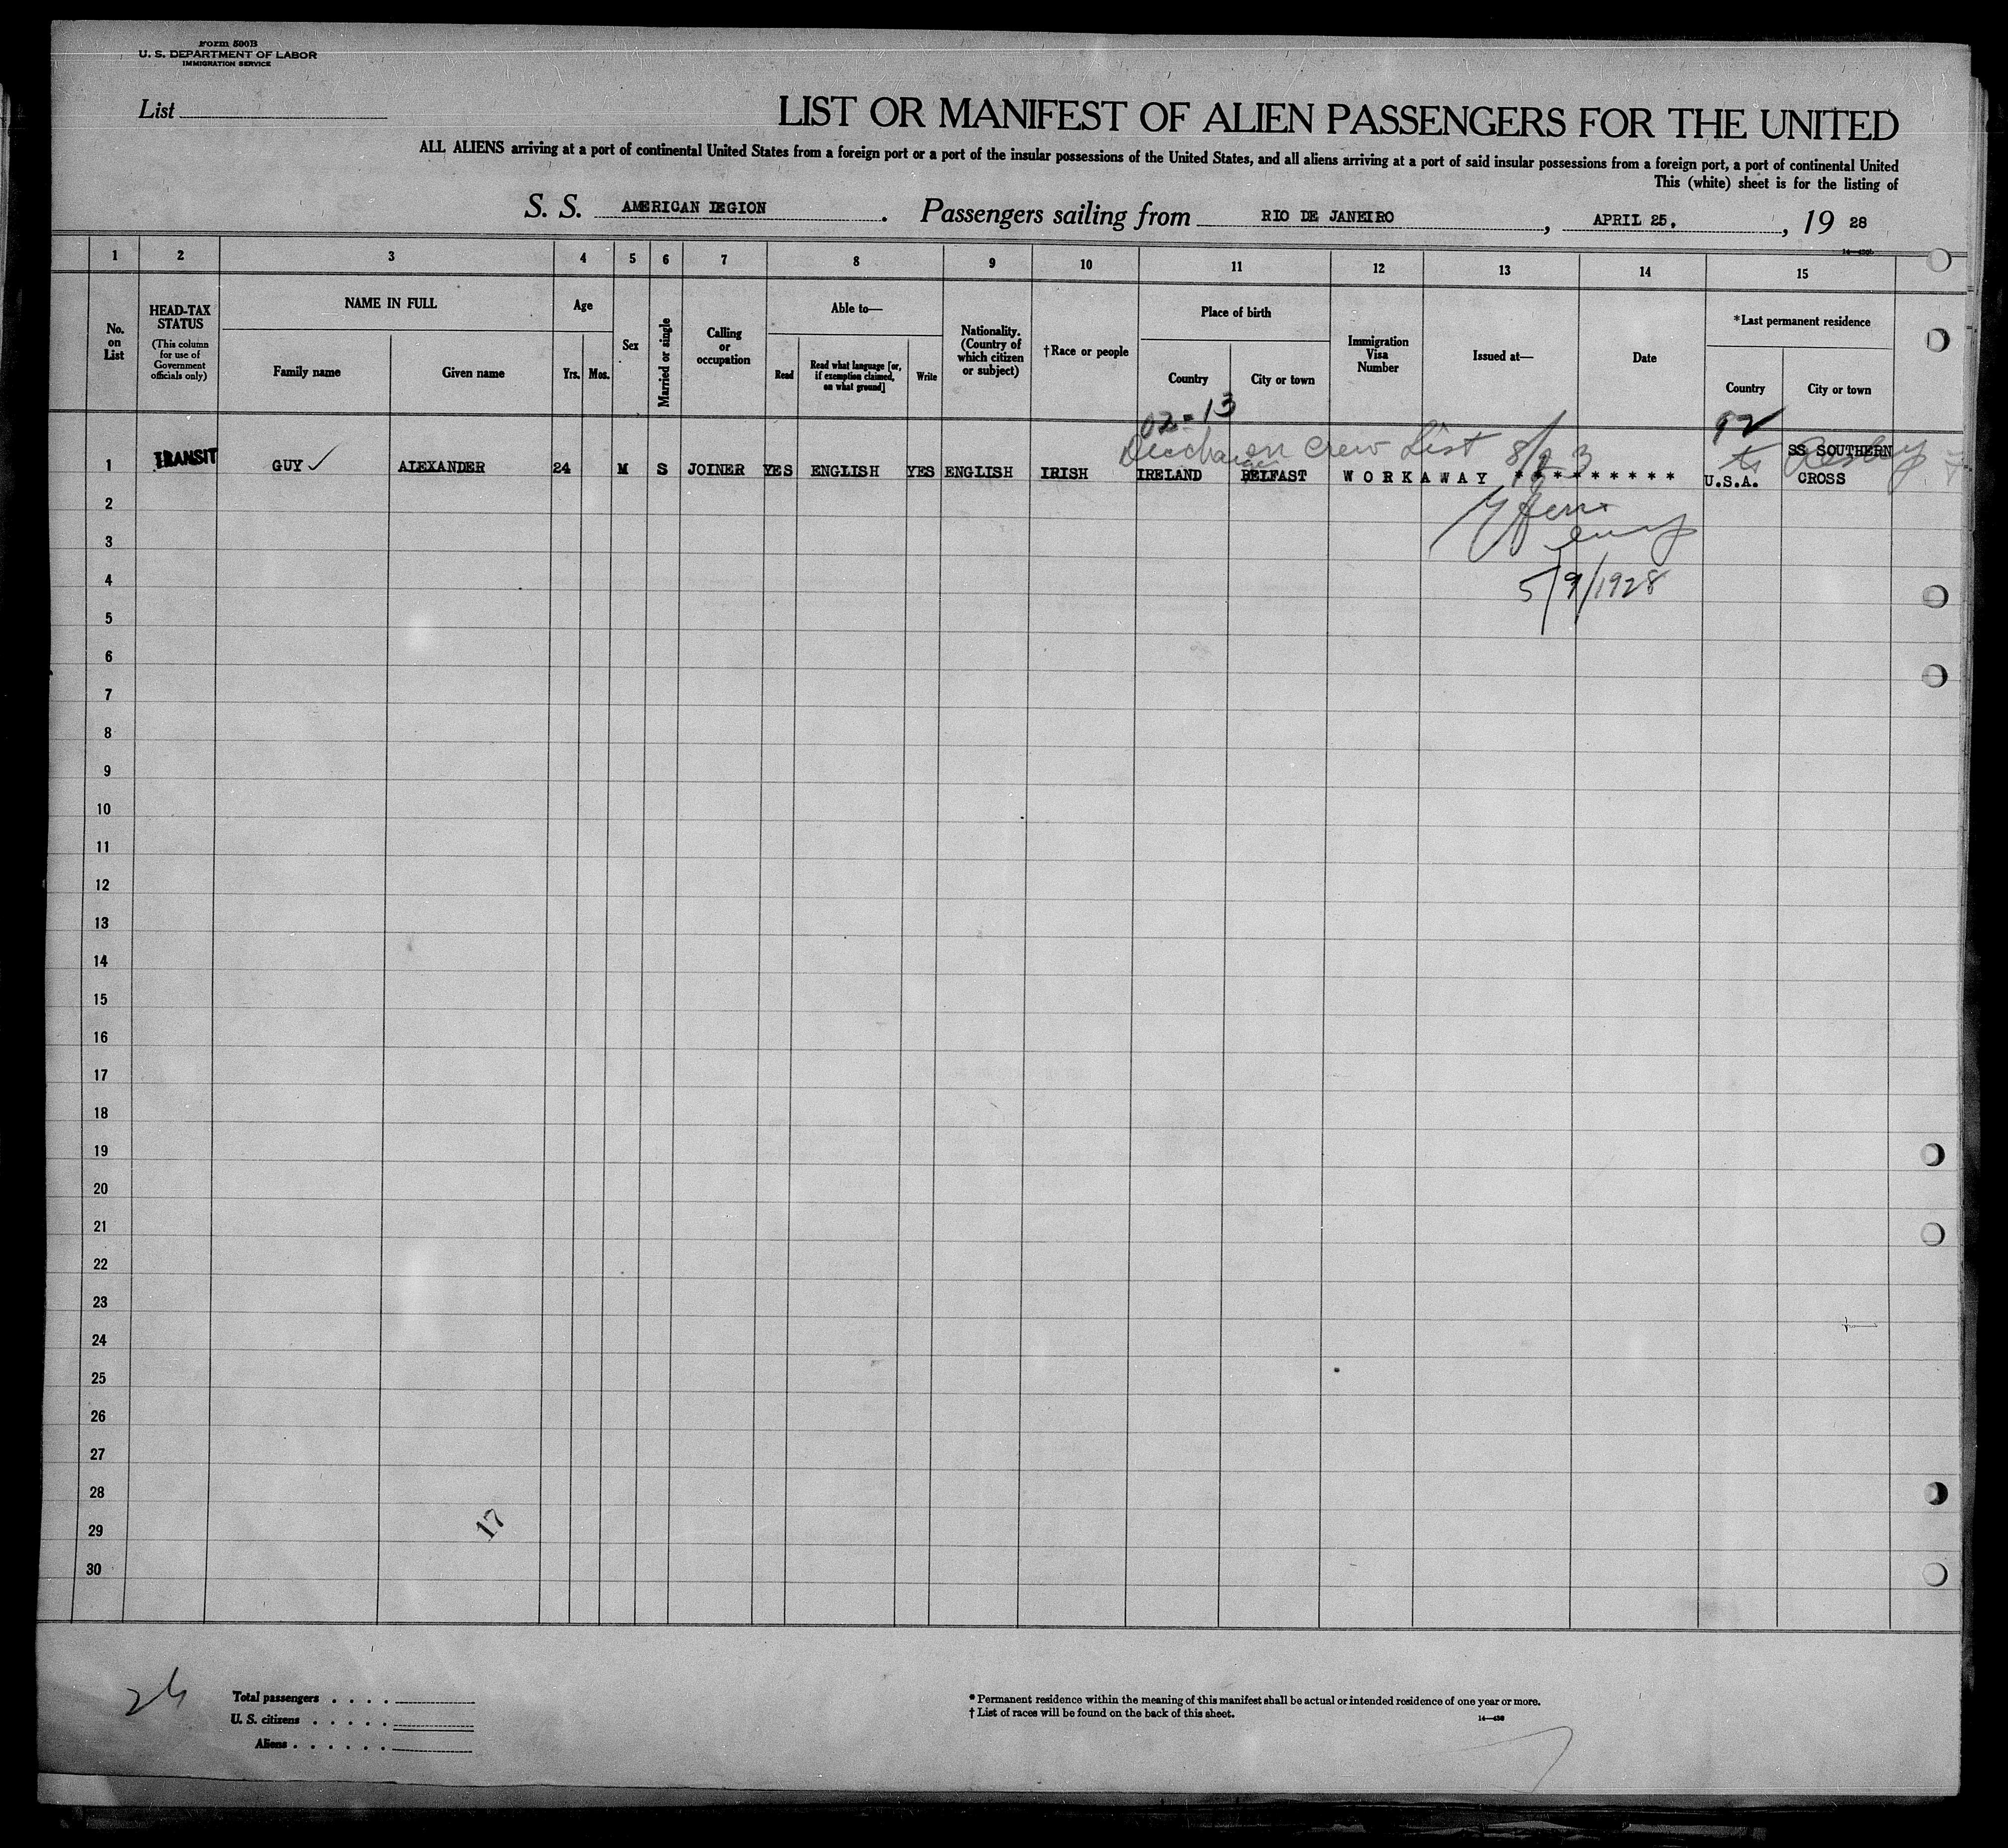 Form 500B
U. S. DEPARTMENT OF LABOR
IMMIGRATION SERVICE
List
LIST OR MANIFEST OF ALIEN PASSENGERS FOR THE UNITED
ALL ALIENS arriving at a port of continental United States from a foreign port or a port of the insular possessions of the United States, and all aliens arriving at a port of said insular possessions from a foreign port, a port of continental United
This (white) sheet is for the listing of
S. S. AMERICAN LEGION . Passengers sailing from RIO DE JANEIRO , APRIL 25. , 19 28
1 2 3 4 5 6 7 8 9 10 11 12 13 14 15
No. on List
HEAD-TAX STATUS
(This column for use of Government officials only)
NAME IN FULL
Family name Given name
Age
Yrs. Mos.
Sex
Married or single
Calling or occupation
Able to—
Read
Read what language [or, if exemption claimed, on what ground]
Write
Nationality. (Country of which citizen or subject)
†Race or people
Place of birth
Country City or town
Immigration Visa Number
Issued at—
Date
*Last permanent residence
Country City or town
02-13
on crew List
1 TRANSIT GUY ✓ ALEXANDER 24 M S JOINER YES ENGLISH YES ENGLISH IRISH IRELAND BELFAST WORKAWAY * * * * * * * * * U.S.A. SS SOUTHERN CROSS
2
3
4
5/9/1928
5
6
7
8
9
10
11
12
13
14
15
16
17
18
19
20
21
22
23
24
25
26
27
28
29
30
17
Total passengers . . . .
U. S. citizens . . . . .
Aliens . . . . . .
* Permanent residence within the meaning of this manifest shall be actual or intended residence of one year or more.
† List of races will be found on the back of this sheet.